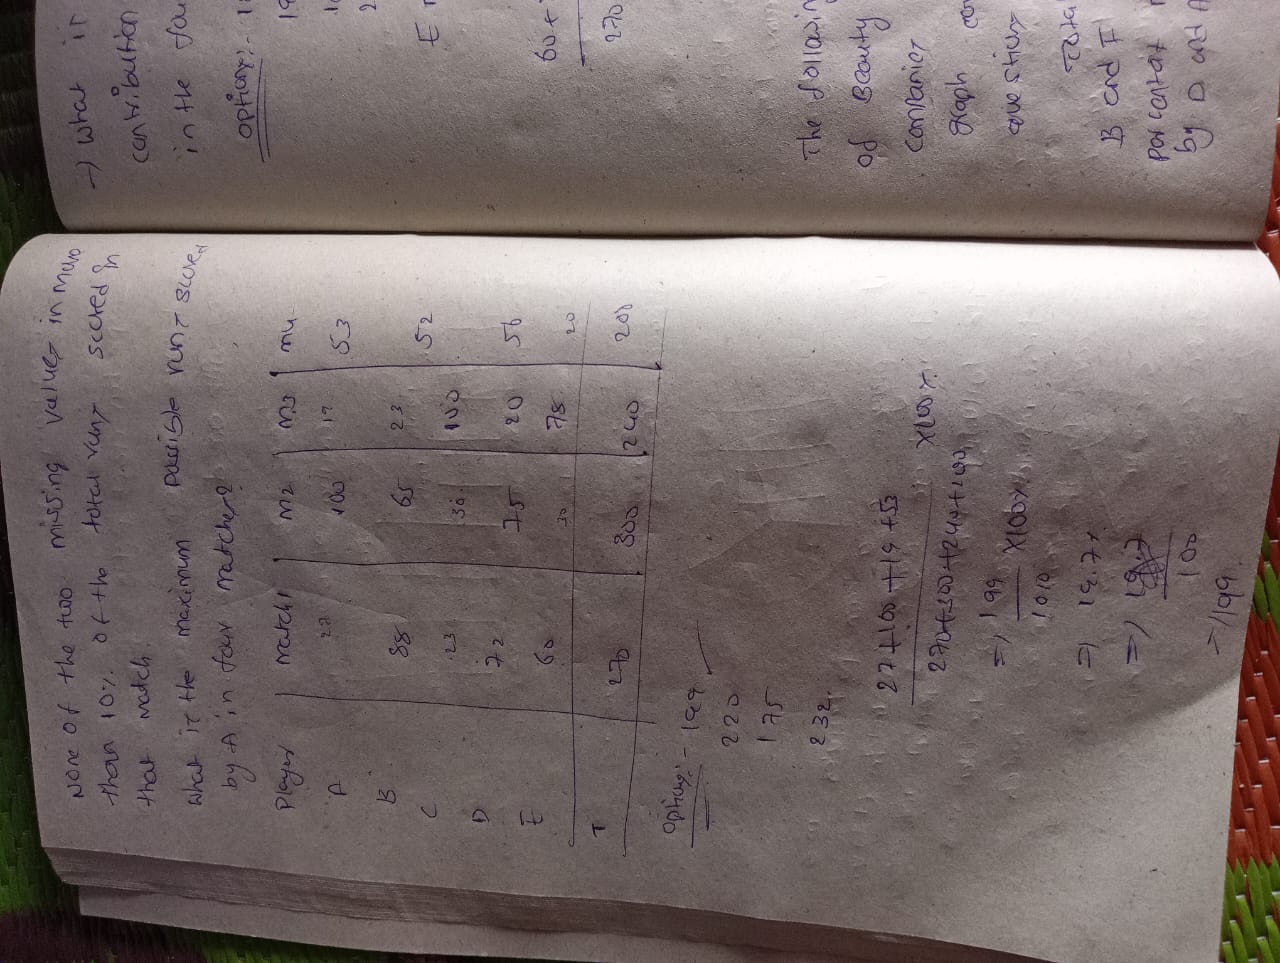 None of the two missing values in more
than 10% of the total runs scored in
that match.
what is the maximum possible runs scored
by A in four matches?
Player match1 M2 M3 M4
A 27 100 19 53
B 88 65 23 52
C 23 30 100
D 72 75 20 56
E 60 30 78 20
T 270 300 240 200
options:- 199
220
175
232.
27+100+19+53
270+300+240+200 ×100%.
=) 199
1010 ×100%
=) 19.7%
=)
100
=) 199.
→ what is
contribution
in the fou
options:- 1
E
60+
270
The followin
of Beauty
companies
graph
question
Tota
B and E
by D and A